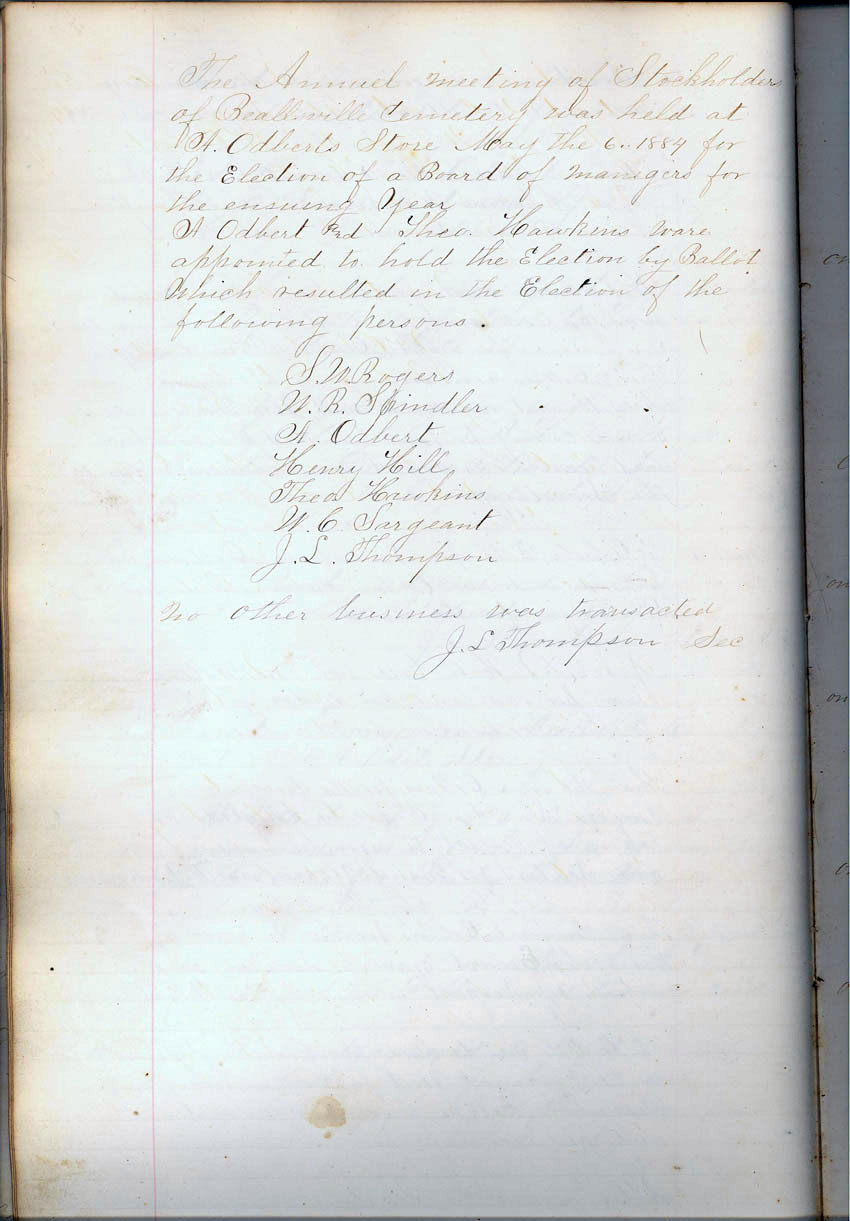 The Annuel meeting of Stockholders
of Beallsville Cemetery was held at
A. Odberts Store May the 6.. 1884 for
the Election of a Board of Managers for
the ensuing Year
A Odbert and Theo. Hawkins ware
appointed to hold the Election by Ballot
Which resulted in the Election of the
following persons.
S. W. Rogers
W. R. Spindler
A. Odbert
Henry Hill
Theo Hawkins
W. C. Sargeant
J. L. Thompson
No other business was transacted
J. L Thompson Sec